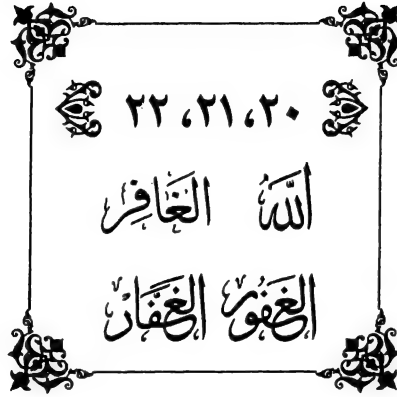 ٢٠، ٢١، ٢٢
اللَّهُ الغَافِر
الغَفُور الغَفَّار